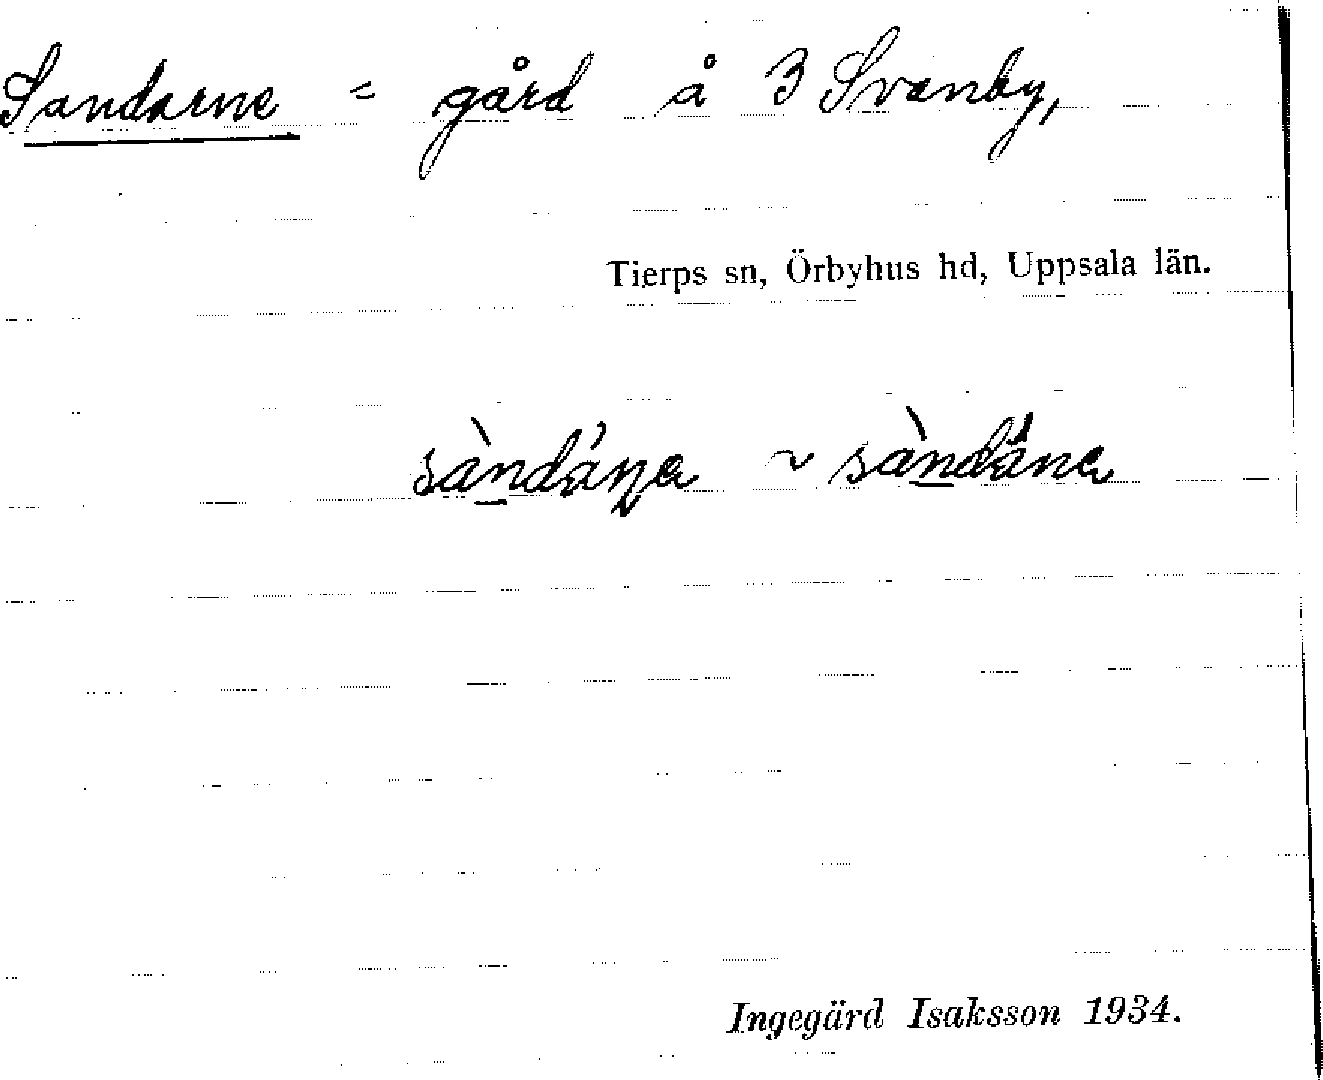 Sandarne = gård å 3 Svanby,
Tierps sn, Örbyhus hd, Uppsala län.
sàndáṇa ~ sàndána
Ingegärd Isaksson 1934.